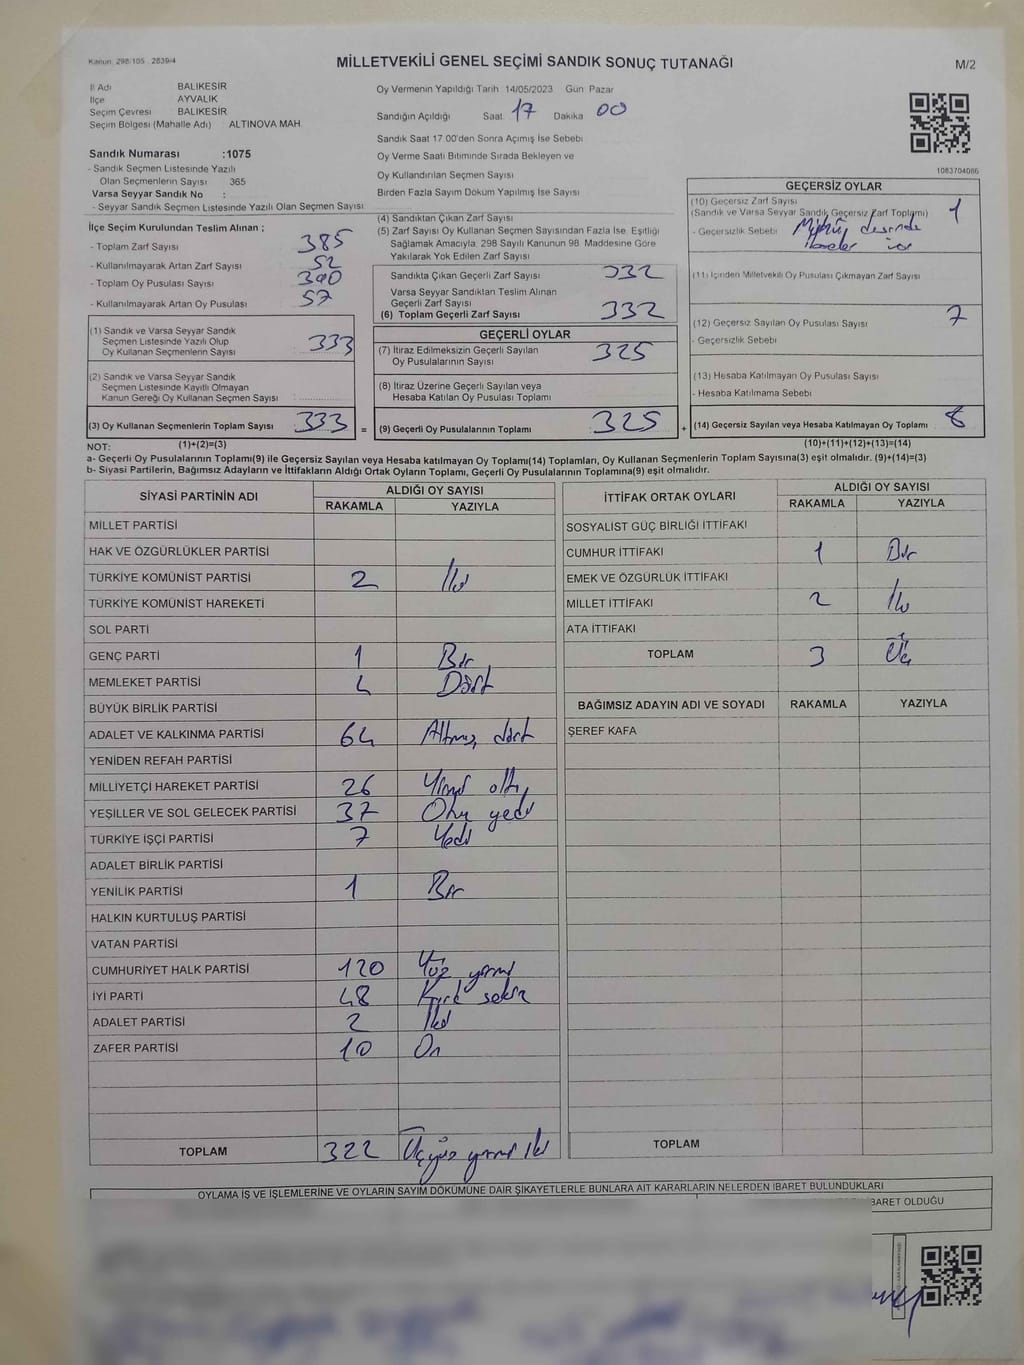 Kanun: 298/105 . 2839/4
MİLLETVEKİLİ GENEL SEÇİMİ SANDIK SONUÇ TUTANAĞI
M/2
İl Adı BALIKESİR
İlçe AYVALIK
Seçim Çevresi BALIKESİR
Seçim Bölgesi (Mahalle Adı) ALTINOVA MAH.
Sandık Numarası :1075
- Sandık Seçmen Listesinde Yazılı
Olan Seçmenlerin Sayısı 365
Varsa Seyyar Sandık No :
- Seyyar Sandık Seçmen Listesinde Yazılı Olan Seçmen Sayısı
Oy Vermenin Yapıldığı Tarih 14/05/2023 Gün Pazar
Sandığın Açıldığı Saat 17 Dakika 00
Sandık Saat 17.00'den Sonra Açımış İse Sebebi
Oy Verme Saati Bitiminde Sırada Bekleyen ve
Oy Kullandırılan Seçmen Sayısı
Birden Fazla Sayım Döküm Yapılmış İse Sayısı
1083704086
İlçe Seçim Kurulundan Teslim Alınan ;
- Toplam Zarf Sayısı 385
- Kullanılmayarak Artan Zarf Sayısı 52
- Toplam Oy Pusulası Sayısı 390
- Kullanılmayarak Artan Oy Pusulası 57
(1) Sandık ve Varsa Seyyar Sandık
Seçmen Listesinde Yazılı Olup
Oy Kullanan Seçmenlerin Sayısı 333
(2) Sandık ve Varsa Seyyar Sandık
Seçmen Listesinde Kayıtlı Olmayan
Kanun Gereği Oy Kullanan Seçmen Sayısı :
(3) Oy Kullanan Seçmenlerin Toplam Sayısı 333
(1)+(2)=(3)
(4) Sandıktan Çıkan Zarf Sayısı
(5) Zarf Sayısı Oy Kullanan Seçmen Sayısından Fazla İse, Eşitliği
Sağlamak Amacıyla, 298 Sayılı Kanunun 98. Maddesine Göre
Yakılarak Yok Edilen Zarf Sayısı
Sandıkta Çıkan Geçerli Zarf Sayısı 332
Varsa Seyyar Sandıktan Teslim Alınan
Geçerli Zarf Sayısı
(6) Toplam Geçerli Zarf Sayısı 332
GEÇERLİ OYLAR
(7) İtiraz Edilmeksizin Geçerli Sayılan 325
Oy Pusulalarının Sayısı
(8) İtiraz Üzerine Geçerli Sayılan veya
Hesaba Katılan Oy Pusulası Toplamı
= (9) Geçerli Oy Pusulalarının Toplamı 325 +
GEÇERSİZ OYLAR
(10) Geçersiz Zarf Sayısı
(Sandık ve Varsa Seyyar Sandık Geçersiz Zarf Toplamı) 1
- Geçersizlik Sebebi Mühür
(11) İçinden Milletvekili Oy Pusulası Çıkmayan Zarf Sayısı
(12) Geçersiz Sayılan Oy Pusulası Sayısı 7
- Geçersizlik Sebebi
(13) Hesaba Katılmayan Oy Pusulası Sayısı
- Hesaba Katılmama Sebebi
(14) Geçersiz Sayılan veya Hesaba Katılmayan Oy Toplamı 8
(10)+(11)+(12)+(13)=(14)
NOT:
a- Geçerli Oy Pusulalarının Toplamı(9) ile Geçersiz Sayılan veya Hesaba katılmayan Oy Toplamı(14) Toplamları, Oy Kullanan Seçmenlerin Toplam Sayısına(3) eşit olmalıdır. (9)+(14)=(3)
b- Siyasi Partilerin, Bağımsız Adayların ve İttifakların Aldığı Ortak Oyların Toplamı, Geçerli Oy Pusulalarının Toplamına(9) eşit olmalıdır.
SİYASİ PARTİNİN ADI ALDIĞI OY SAYISI
RAKAMLA YAZIYLA
MİLLET PARTİSİ
HAK VE ÖZGÜRLÜKLER PARTİSİ
TÜRKİYE KOMÜNİST PARTİSİ 2 İki
TÜRKİYE KOMÜNİST HAREKETİ
SOL PARTİ
GENÇ PARTİ 1 Bir
MEMLEKET PARTİSİ 4 Dört
BÜYÜK BİRLİK PARTİSİ
ADALET VE KALKINMA PARTİSİ 64 Altmış dört
YENİDEN REFAH PARTİSİ
MİLLİYETÇİ HAREKET PARTİSİ 26 Yirmi altı
YEŞİLLER VE SOL GELECEK PARTİSİ 37 Otuz yedi
TÜRKİYE İŞÇİ PARTİSİ 7 Yedi
ADALET BİRLİK PARTİSİ
YENİLİK PARTİSİ 1 Bir
HALKIN KURTULUŞ PARTİSİ
VATAN PARTİSİ
CUMHURİYET HALK PARTİSİ 120 Yüz yirmi
İYİ PARTİ 48 Kırk sekiz
ADALET PARTİSİ 2 İki
ZAFER PARTİSİ 10 On
TOPLAM 322 Üçyüz yirmi iki
İTTİFAK ORTAK OYLARI ALDIĞI OY SAYISI
RAKAMLA YAZIYLA
SOSYALİST GÜÇ BİRLİĞİ İTTİFAKI
CUMHUR İTTİFAKI 1 Bir
EMEK VE ÖZGÜRLÜK İTTİFAKI
MİLLET İTTİFAKI 2 İki
ATA İTTİFAKI
TOPLAM 3 Üç
BAĞIMSIZ ADAYIN ADI VE SOYADI RAKAMLA YAZIYLA
ŞEREF KAFA
TOPLAM
OYLAMA İŞ VE İŞLEMLERİNE VE OYLARIN SAYIM DÖKÜMÜNE DAİR ŞİKAYETLERLE BUNLARA AİT KARARLARIN NELERDEN İBARET BULUNDUKLARI
İBARET OLDUĞU